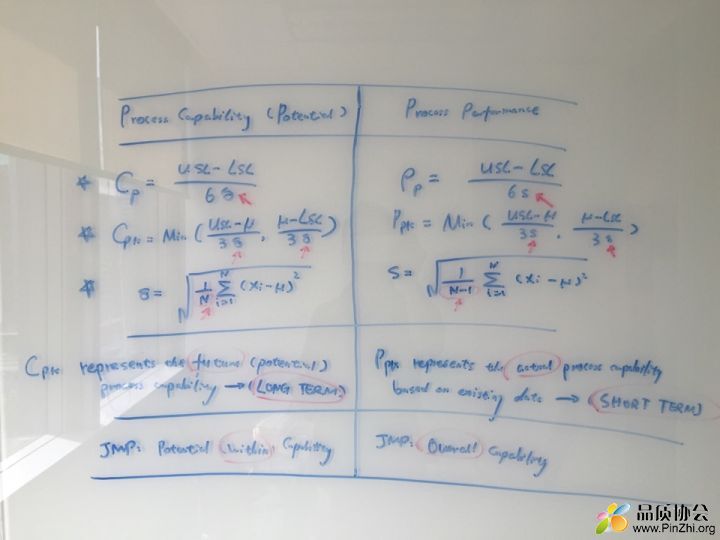 Process Capability (Potential)
Process Performance
* Cp = USL - LSL / 6s
Pp = USL - LSL / 6s
* Cpk = Min ( USL - μ / 3s , μ - LSL / 3s )
Ppk = Min ( USL - μ / 3s , μ - LSL / 3s )
* s = √ 1/N Σ i=1 N (xi - μ)²
s = √ 1/N-1 Σ i=1 N (xi - μ)²
Cpk represents the future (potential)
process capability → (LONG TERM)
Ppk represents the actual process capability
based on existing data → (SHORT TERM)
JMP: Potential (Within) Capability
JMP: Overall Capability
品质协会
www.PinZhi.org